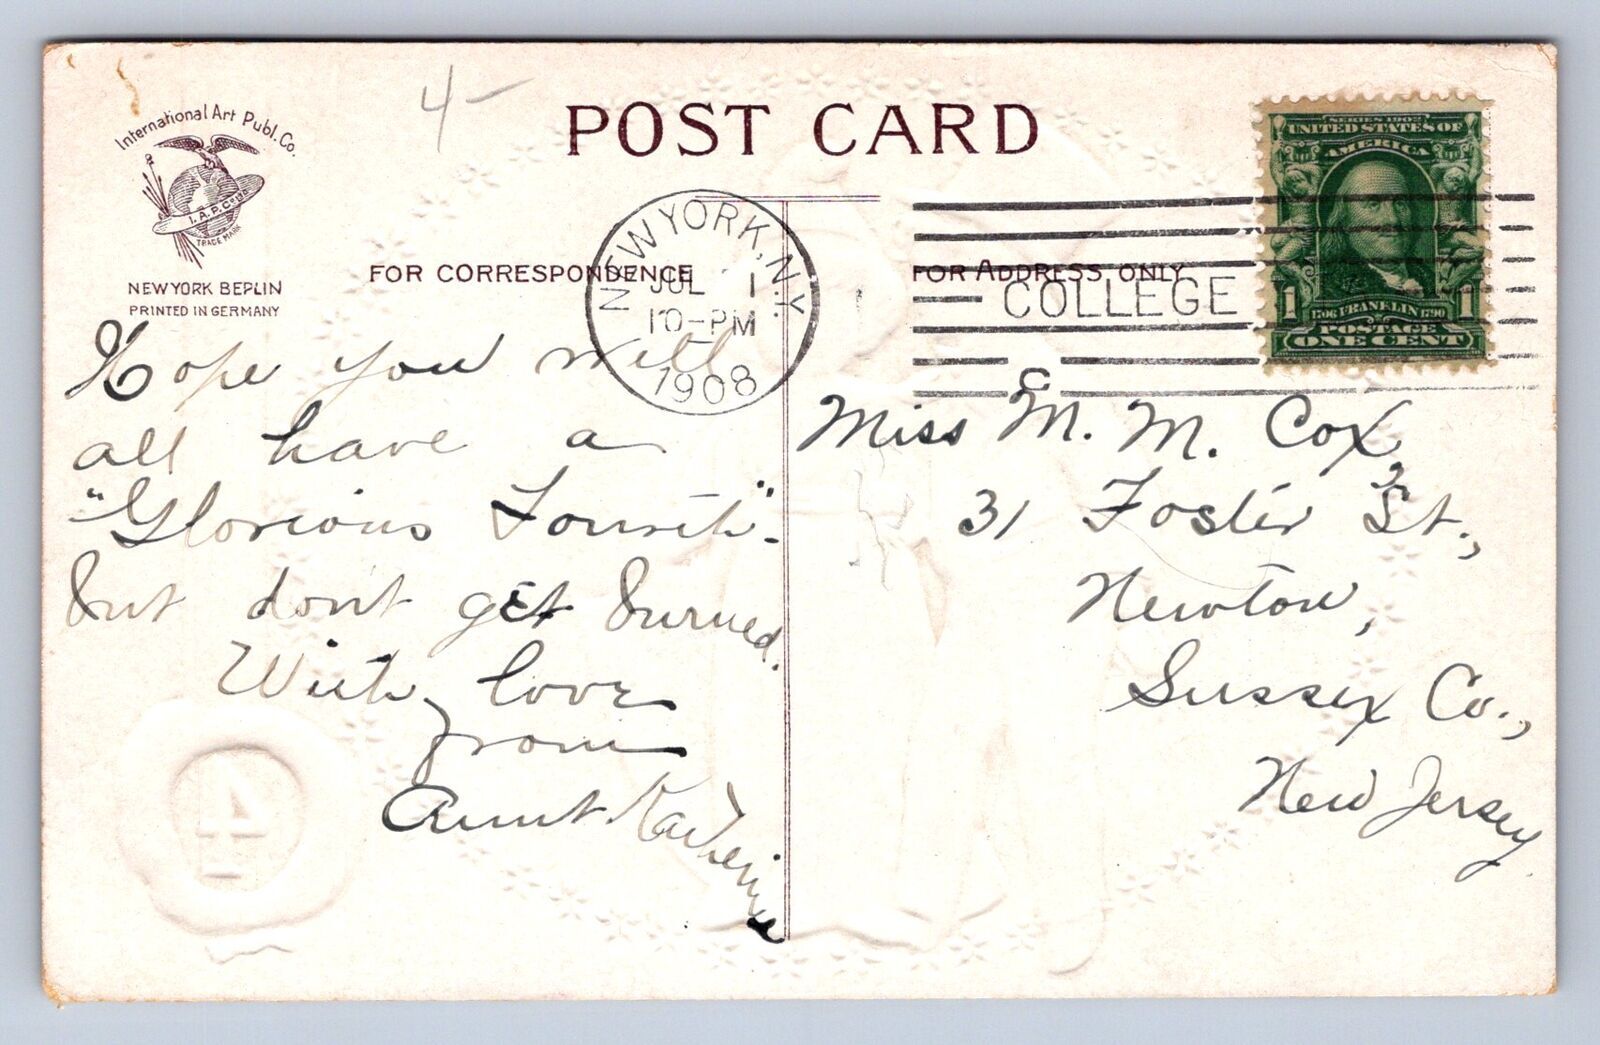 4-
POST CARD
International Art Publ. Co.
I. A. P. Co.
TRADE MARK
NEW YORK BERLIN
PRINTED IN GERMANY
FOR CORRESPONDENCE
FOR ADDRESS ONLY
NEW YORK, N.Y.
JUL 1
10-PM
1908
COLLEGE
SERIES 1902
UNITED STATES OF
AMERICA
1 1
1706 FRANKLIN 1790
POSTAGE
ONE CENT
Hope you will
all have a
"Glorious Fourth"-
but don't get burned.
With love
from
Aunt Katherine
Miss M. M. Cox,
31 Foster St.,
Newton,
Sussex Co.,
New Jersey
4